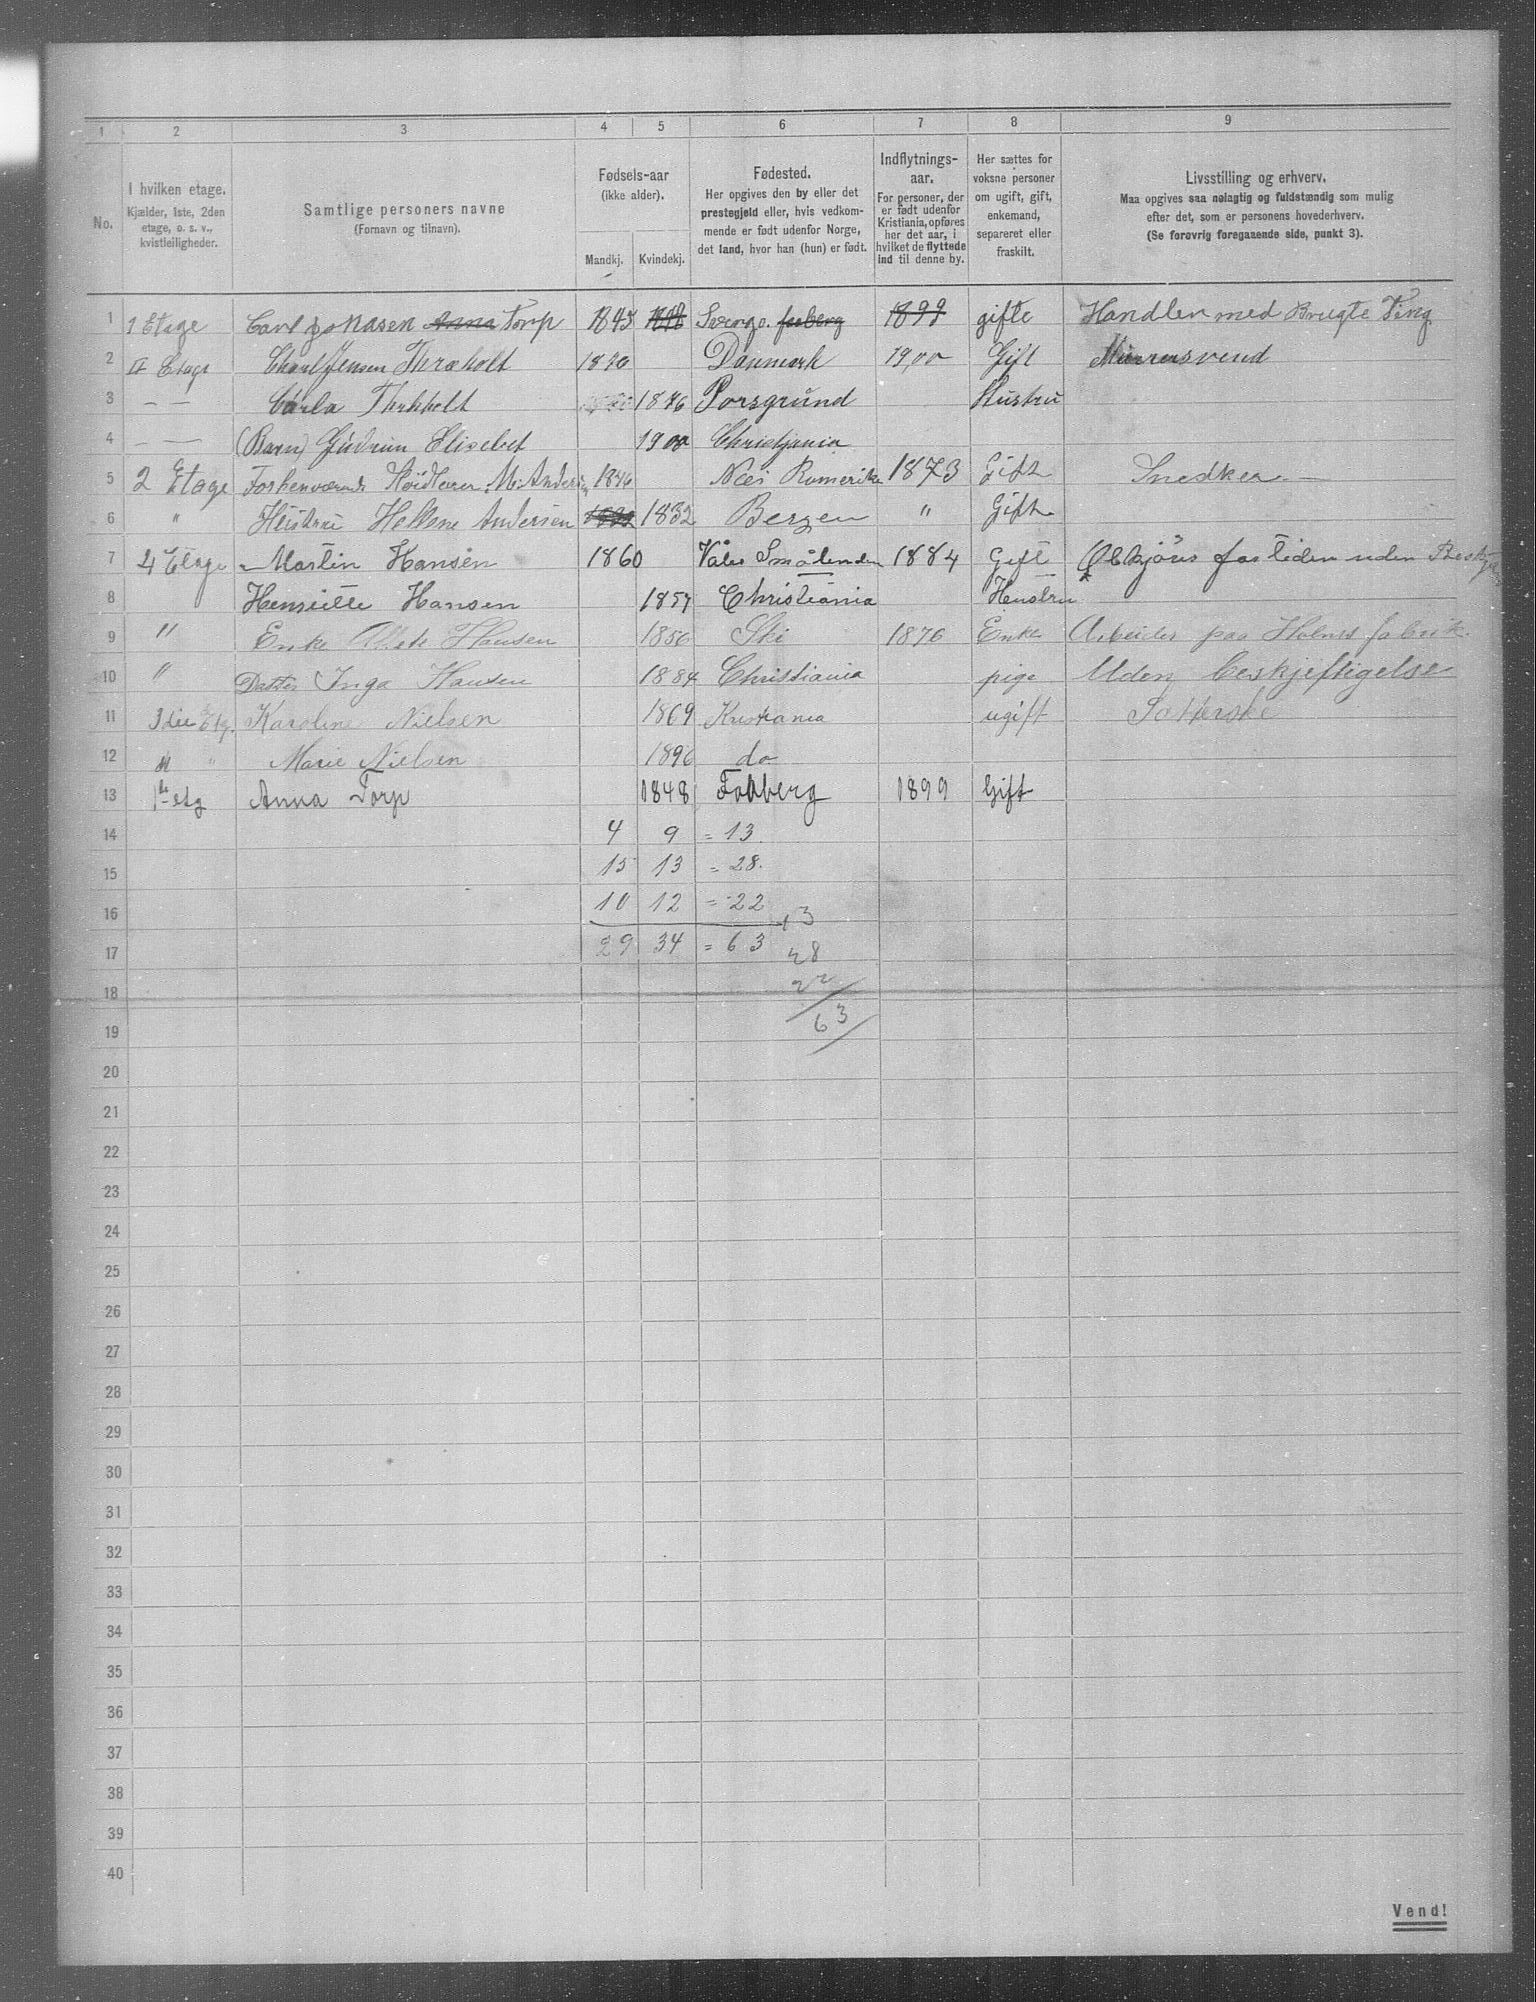 1 2 3 4 5 6 7 8 9
No.
I hvilken etage.
Kjælder, 1ste, 2den
etage, o. s. v.,
kvistleiligheder.
Samtlige personers navne
(Fornavn og tilnavn).
Fødsels-aar
(ikke alder).
Mandkj. Kvindekj.
Fødested.
Her opgives den by eller det
prestegjeld eller, hvis vedkom-
mende er født udenfor Norge,
det land, hvor han (hun) er født.
Indflytnings-
aar.
For personer, der
er født udenfor
Kristiania, opføres
her det aar, i
hvilket de flyttede
ind til denne by.
Her sættes for
voksne personer
om ugift, gift,
enkemand,
separeret eller
fraskilt.
Livsstilling og erhverv.
Maa opgives saa nøiagtig og fuldstændig som mulig
efter det, som er personens hovederhverv.
(Se forøvrig foregaaende side, punkt 3).
1 1 Etage Carl Anna Torp 1845 1848 Sverge. 1899 gifte Handler med Brugte Ting
2 II Etage Jensen Thræholt Danmark 19,00 Gift Murersvend
3 — — Carla 1876 Porsgrund Hustru
4 — — (Barn) Gudrun Elisebet 1900 Christjania
5 2 Etage M. Andersen 1846 Næs Romerike 1873 Gift Snedker
6 " Hustru Hellene Andersen 1832 Bergen " Gift
7 4 Etage Martin Hansen 1860 Våler Smålenden 1884 Gift for tiden uden
8 Henriette Hansen 1857 Christiania Hustru
9 " Enke Hansen 1856 Ski 1876 Enke Arbeider paa Holmes fabrik.
10 " Datter Inga Hansen 1884 Christiania pige Uden beskjeftigelse
11 3die Etg. Karoline Nielsen 1869 Kristiania ugift
12 " Marie Nielsen 1896 do
13 1ste etg Anna Torp 1848 Faaberg 1899 Gift
14 4 9 = 13.
15 15 13 = 28.
16 10 12 = 22
17 29 34 = 63
13
28
18 22
19 63
20
21
22
23
24
25
26
27
28
29
30
31
32
33
34
35
36
37
38
39
40
Vend!